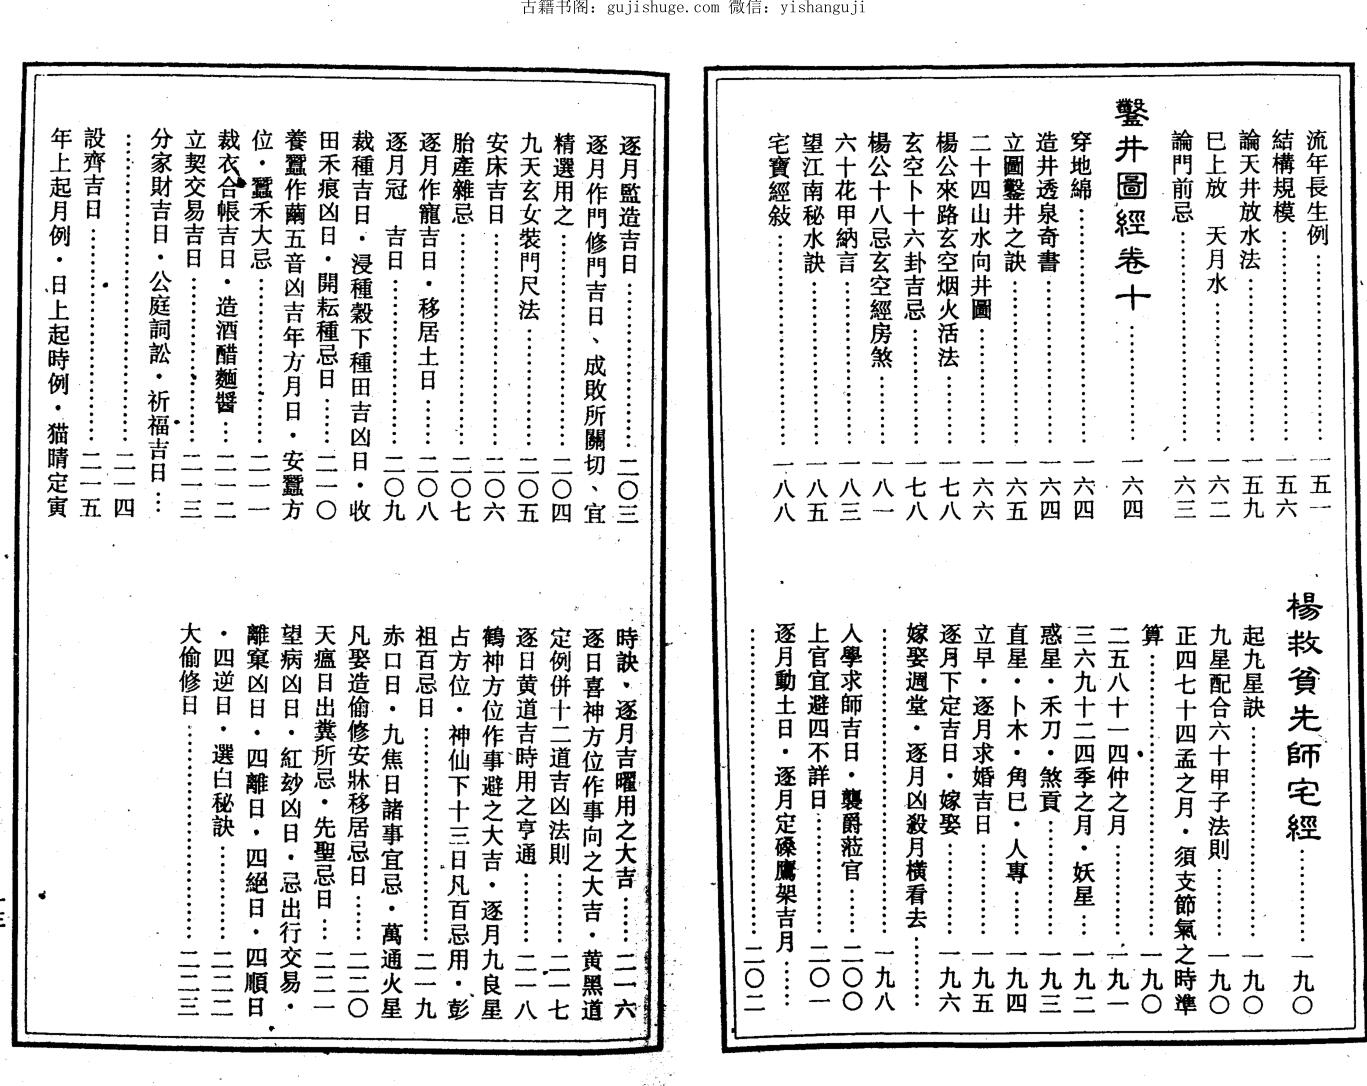 古籍书阁：gujishuge.com 微信：yishanguji
流年長生例……一五一
結構規模……一五六
論天井放水法……一五九
巳上放　天月水……一六二
論門前忌……一六三
鑿井圖經卷十……一六四
穿地綿……一六四
造井透泉奇書……一六四
立圖鑿井之訣……一六五
二十四山水向井圖……一六六
楊公來路玄空烟火活法……一七八
玄空卜十六卦吉忌……一七八
楊公十八忌玄空經房煞……一八一
六十花甲納言……一八三
望江南秘水訣……一八五
宅寶經敍……一八八
楊救貧先師宅經……一九〇
起九星訣……一九〇
九星配合六十甲子法則……一九〇
正四七十四孟之月・須支節氣之時準
算……一九〇
二五八十一四仲之月……一九一
三六九十二四季之月・妖星……一九二
惑星・禾刀・煞貢……一九三
直星・卜木・角巳・人專……一九四
立早・逐月求婚吉日……一九五
逐月下定吉日・嫁娶……一九六
嫁娶週堂・逐月凶殺月橫看去……
……一九八
人學求師吉日・襲爵蒞官……二〇〇
上官宜避四不詳日……二〇一
逐月動土日・逐月定磉鷹架吉月……
……二〇二
逐月監造吉日……二〇三
逐月作門修門吉日、成敗所關切、宜
精選用之……二〇四
九天玄女裝門尺法……二〇五
安床吉日……二〇六
胎產雜忌……二〇七
逐月作寵吉日・移居土日……二〇八
逐月冠　吉日……二〇九
裁種吉日・浸種穀下種田吉凶日・收
田禾痕凶日・開耘種忌日……二一〇
養蠶作繭五音凶吉年方月日・安蠶方
位・蠶禾大忌……二一一
裁衣合帳吉日・造酒醋麵醬…二一二
立契交易吉日……二一三
分家財吉日・公庭詞訟・祈福吉日…
……二一四
設齊吉日……二一五
年上起月例・日上起時例・猫睛定寅
時訣・逐月吉曜用之大吉……二一六
逐日喜神方位作事向之大吉・黄黑道
定例併十二道吉凶法則……二一七
逐日黄道吉時用之亨通……二一八
鶴神方位作事避之大吉・逐月九良星
占方位・神仙下十三日凡百忌用・彭
祖百忌日……二一九
赤口日・九焦日諸事宜忌・萬通火星
凡娶造偷修安牀移居忌日……二二〇
天瘟日出糞所忌・先聖忌日…二二一
望病凶日・紅紗凶日・忌出行交易・
離窠凶日・四離日・四絕日・四順日
・四逆日・選白秘訣……二二二
大偷修日……二二三